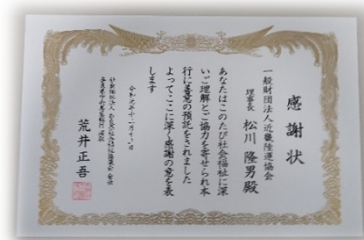 感謝状
一般財団法人近畿陸運協会
理事長 松川隆男殿
あなたはこのたび社会福祉に深
いご理解とご協力を寄せられ本
行に善意の預託をされました
よってここに深く感謝の意を表
します
令和元年十一月
荒井正吾